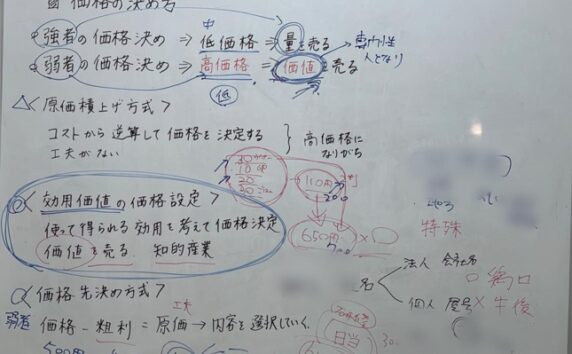 価格の決め方
強者の価格決め ⇒ 低価格 ⇒ 量を売る
中
専門性
人となり
弱者の価格決め ⇒ 高価格 = 価値を売る
低
△〈原価積上げ方式〉
コストから逆算して価格を決定する
工夫がない
高価格に
なりがち
110円
200
650円
〈効用価値の価格設定〉
使って得られる効用を考えて価格決定
価値を売る 知的産業
特殊
名
法人 会社名
○鶏口
個人 屋号 × 牛後
〈価格先決め方式〉
弱者
工夫
価格 - 粗利 = 原価 → 内容を選択していく。
日当
500円